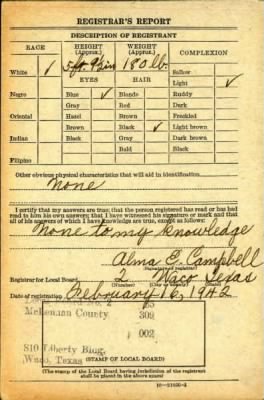 REGISTRAR'S REPORT
DESCRIPTION OF REGISTRANT
RACE HEIGHT (Approx.) WEIGHT (Approx.) COMPLEXION
White ✓ 5 ft. 9 in 180 lb. Sallow
EYES HAIR Light ✓
Negro Blue ✓ Blonde Ruddy
Gray Red Dark
Oriental Hazel Brown Freckled
Brown Black ✓ Light brown
Indian Black Gray Dark brown
Bald Black
Filipino
Other obvious physical characteristics that will aid in identification
None
I certify that my answers are true; that the person registered has read or has had
read to him his own answers; that I have witnessed his signature or mark and that
all of his answers of which I have knowledge are true, except as follows:
None to my knowledge
Alma E. Campbell
(Signature of registrar)
Registrar for Local Board 2 Waco Texas
(Number) (City or county) (State)
Date of registration February 16, 1942
No. 2
McLennan County 309
002
810 Liberty Bldg.
Waco, Texas
(STAMP OF LOCAL BOARD)
(The stamp of the Local Board having jurisdiction of the registrant
shall be placed in the above space)